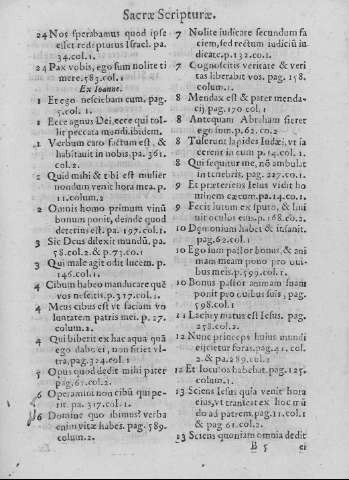 Sacræ Scripturæ.
24 Nos sperabamus quod ipse
esset redempturus Israel. pa.
34. col. 1.
24 Pax vobis, ego sum nolite ti
mere. 583. col. 1
Ex Ioanne.
1 Et ego nesciebam eum. pag.
5. col. 1.
1 Ecce agnus Dei, ecce qui tol-
lit peccata mundi. ibidem.
1 Verbum caro factum est, &
habitauit in nobis. pa. 361.
col. 2.
2 Quid mihi & tibi est mulier
nondum venit hora mea. p.
11. colum. 2
2 Omnis homo primum vinū
bonum ponit, deinde quod
deterius est. pa. 197. col. 1.
3 Sic Deus dilexit mundū. pa.
58. col. 2. & p. 73. co. 1
3 Qui male agit odit lucem. p.
146. col. 1.
4 Cibum habeo manducare quē
vos nescitis. p. 317. col. 1.
4 Meus cibus est vt faciam vo
luntatem patris mei. p. 27.
colum. 2.
4 Qui biberit ex hac aqua quā
ego dabo ei, non sitiet vl-
tra. pag. 324. col. 1
5 Opus quod dedit mihi pater
pag. 61. col. 2.
6 Operamini non cibū qui pe-
rit. pa. 317. col. 1.
6 Domine quo ibimus? verba
enim vitæ habes. pag. 589.
colum. 2.
7 Nolite iudicare secundum fa
ciem, sed rectum iudiciū in
dicate. p. 132. co. 1.
7 Cognoscitis veritatē & veri
tas liberabit vos. pag. 158.
colum. 1.
8 Mendax est & pater menda-
cij. pag. 170. col. 1
8 Antequam Abraham fieret
ego sum. p. 62. co. 2
8 Tulerunt lapides Iudæi, vt ia
cerent in eum p. 14. col. 1.
8 Qui sequitur me, nō ambulat
in tenebris. pag. 227. co. 1.
9 Et præteriens Iesus vidit ho
minem cæcum. pa. 14. co. 1.
9 Fecit lutum ex sputo, & lini
uit oculos eius. p. 168. co. 2.
10 Dæmonium habet & insanit.
pag. 62. col. 1.
10 Ego sum pastor bonus, & ani
mam meam pono pro oui-
bus meis. p. 599. col. 1.
10 Bonus pastor animam suam
ponit pro ouibus suis, pag.
598. col. 1
11 Lacrymatus est Iesus. pag.
258. col. 2.
12 Nunc princeps huius mundi
eijcietur foras. pag. 41. col.
2. & pa. 289. col. 2
12 Et loculos habebat. pag. 125.
colum. 1.
13 Sciens Iesus quia venit hora
eius, vt transeat ex hoc mū
do ad patrem. pag. 11. col. 1.
& pag 61. col. 2.
13 Sciens quoniam omnia dedit
B 5 ei